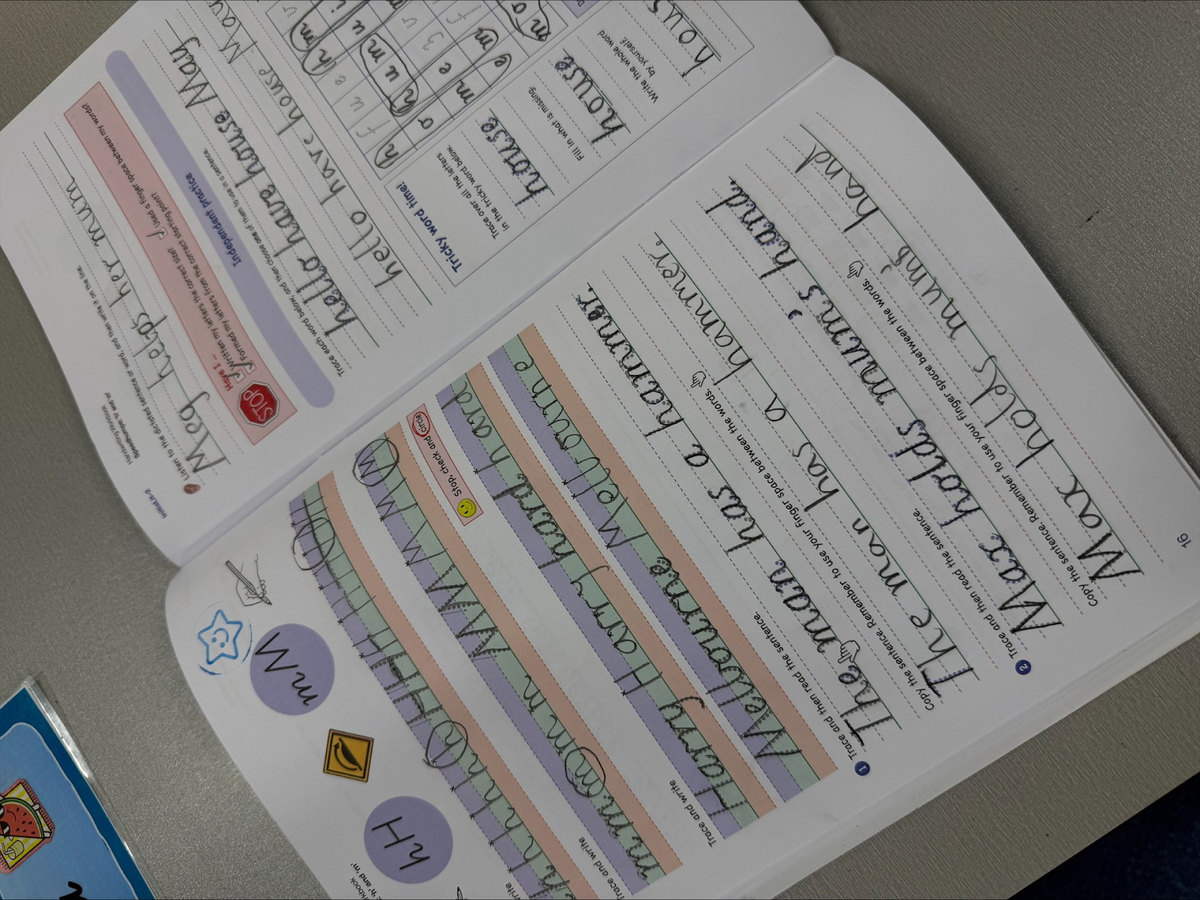 hH
mM
Trace and write
Trace and write
m m m m m M M M M
Stop, check and circle
Trace and write
Harry Harry hard hard
Melbourne Melbourne
1 Trace and then read the sentence.
The man has a hammer.
Copy the sentence. Remember to use your finger space between the words.
The man has a hammer.
2 Trace and then read the sentence.
Max holds mum's hand.
Copy the sentence. Remember to use your finger space between the words.
Max holds mum's hand
16
Listen to the dictated sentence or word, and then write it on the line.
Meg helps her mum
STOP
Have I –
Written my letters the correct size?
Formed my letters from the correct starting point?
Used a finger space between my words?
Independent practice
Trace each word below, and then choose one of them to use in a sentence.
hello have house May
hello have house May
Tricky word time!
Trace over all the letters
in the tricky word below.
house
Fill in what is missing.
house
Write the whole word
by yourself.
hous